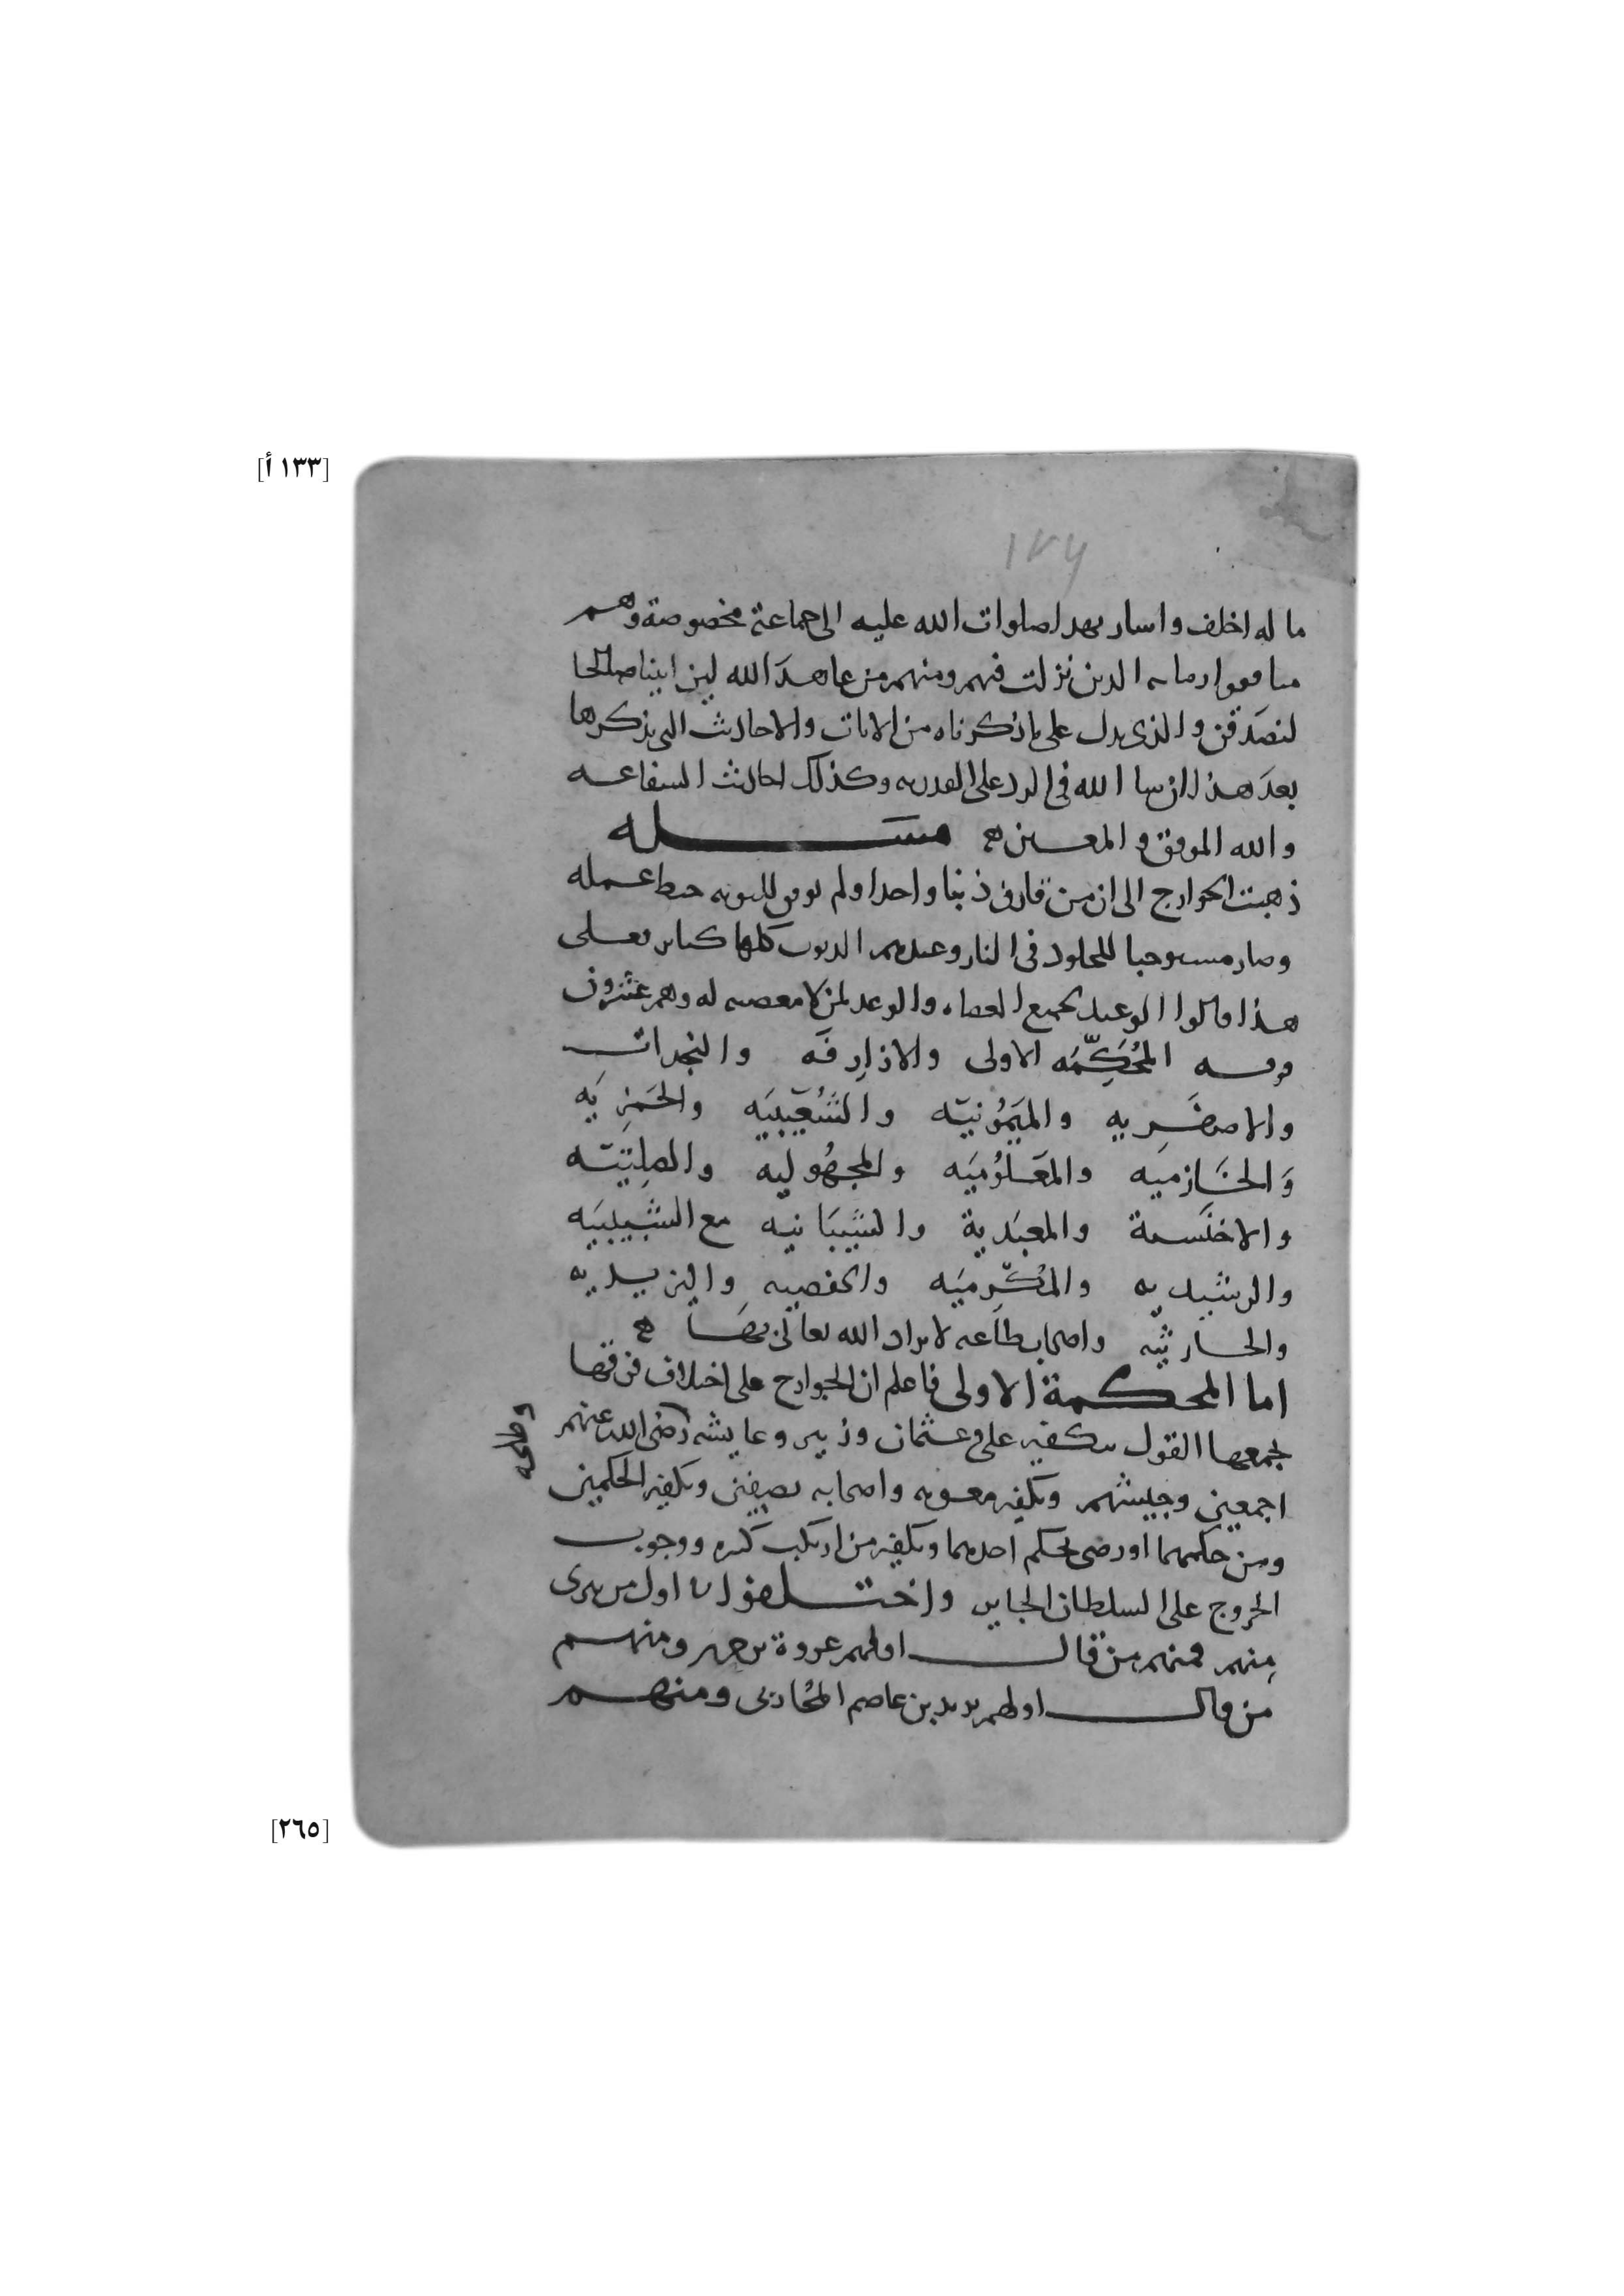 [١٣٣ أ]
١٧٦
ما له اخلف واسار بهدا صلوات الله عليه الى جماعة مخصوصة وهم
منافقوا زمانه الذين نزلت فيهم ومنهم من عاهد الله لين اتينا صالحا
لنصدقن والذي يدل على ما ذكرناه من الايات والاحاديث التي نذكرها
بعد هذا ان شا الله في الرد على القدريه وكذلك احاديث الشفاعه
والله الموفق والمعين ه مسئله
ذهبت الخوارج الى ان من قارف ذنبا واحدا ولم يوفق للتوبه حبط عمله
وصار مستوجبا للخلود في النار وعندهم الذنوب كلها كباير فعلى
هذا قالوا الوعيد لجميع العصاه والوعد لمن لا معصيه له وهم عشرون
فرقه المُحَكِّمَه الاولى والازارِقَه والنجدات
والاصفَرِيه والمَيمُونيّه والشُعَيبيَه والحَمزيَه
وَالخَازميه والمَعلُوميَه والمجهُوليه والصلتيّه
والاخنَسية والمعبَدية والشيبَانيه مع الشَبيبيَه
والرشيديه والمُكَرّميَه والحفصيه واليزيديه
والحارثيه واصحاب طاعه لا يراد الله تعالى بهَا ه
اما المحكمة الاولى فاعلم ان الخوارج على اختلاف فرقها
يجمعها القول بتكفير علي وعثمان وزبير وعايشه رضى الله عنهم
وطلحه
اجمعين وجيشهم وتكفير معويه واصحابه بصِفين وتكفير الحكمين
ومن حكمهما او رضى بحكم احدهما وتكفير من ارتكب كبيره ووجوب
الخروج على السلطان الجاير واختلفوا في اول من شرى
مِنهم فمنهم من قال اولهم عروة بن حدير ومنهم
من قال اولهم يزيد بن عاصم المُحَاربي ومنهم
[٢٦٥]